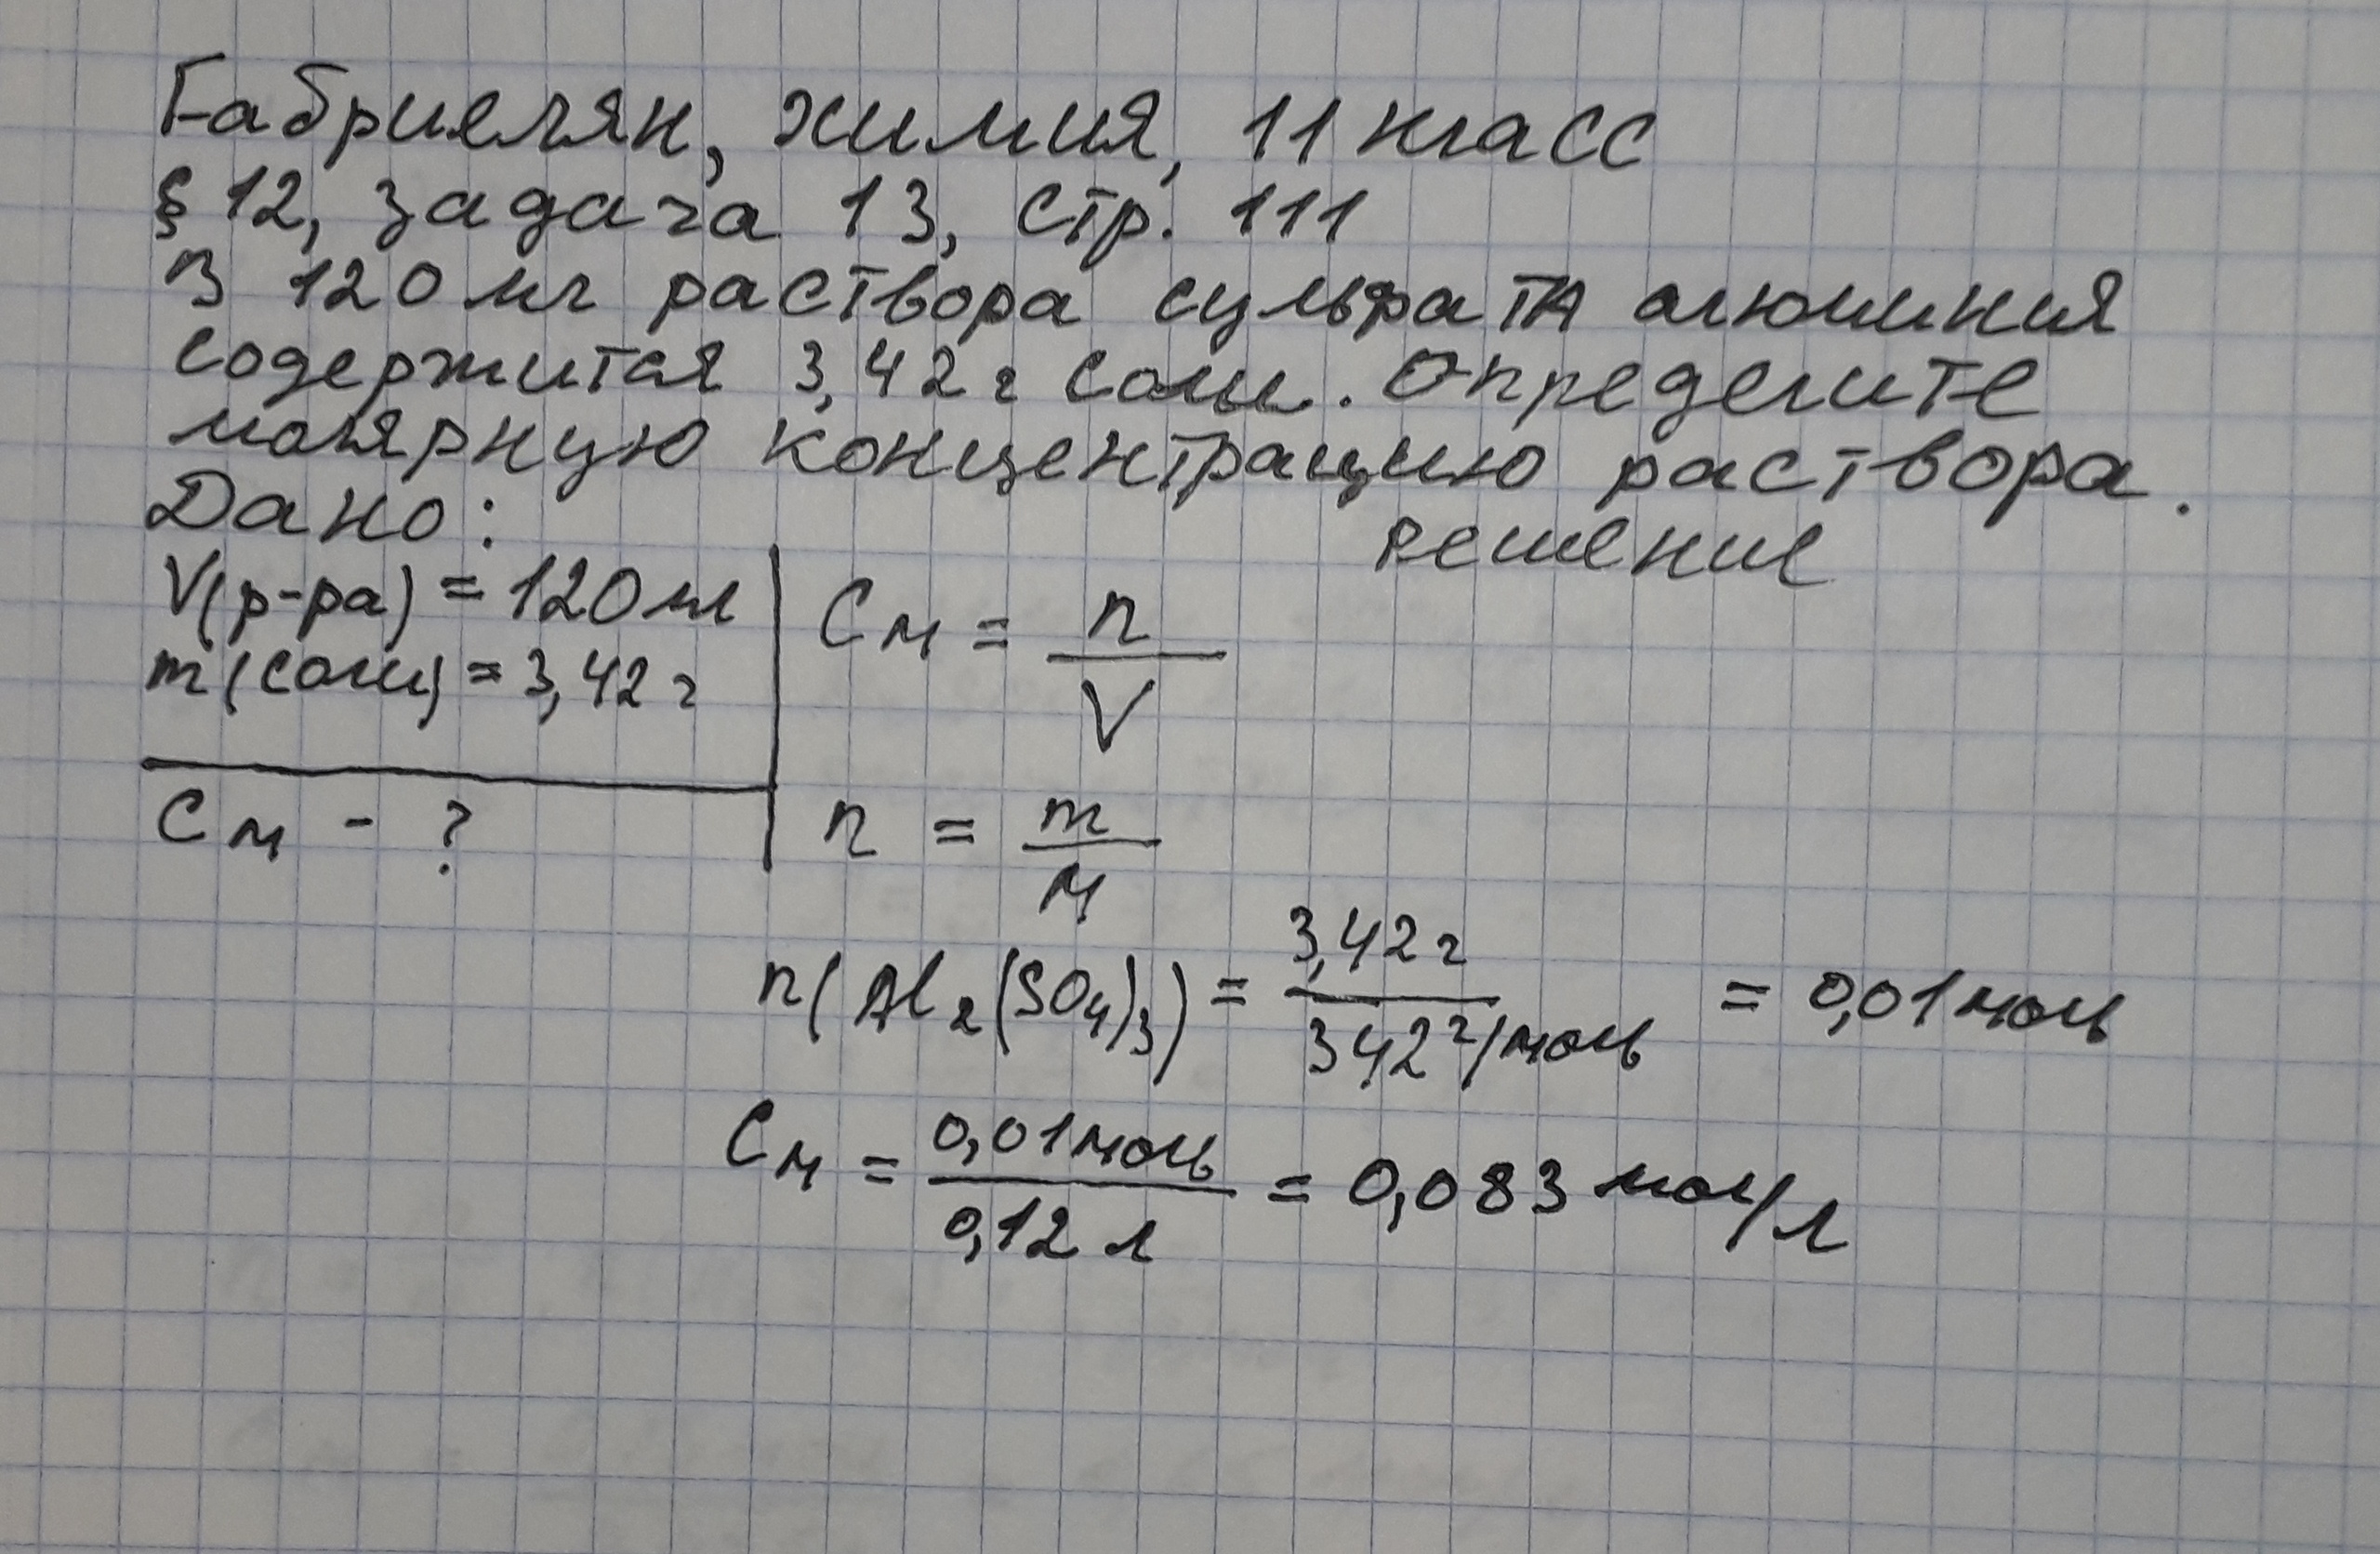 Габриелян, химия, 11 класс
§ 12, задача 13, стр. 111
В 120 мл раствора сульфата алюминия
содержится 3,42 г соли. Определите
молярную концентрацию раствора.
Дано:
решение
V(р-ра) = 120 мл
m(соли) = 3,42 г
См - ?
См = n / V
n = m / М
n(Al₂(SO₄)₃) = 3,42 г / 342 г/моль = 0,01 моль
См = 0,01 моль / 0,12 л = 0,083 моль/л